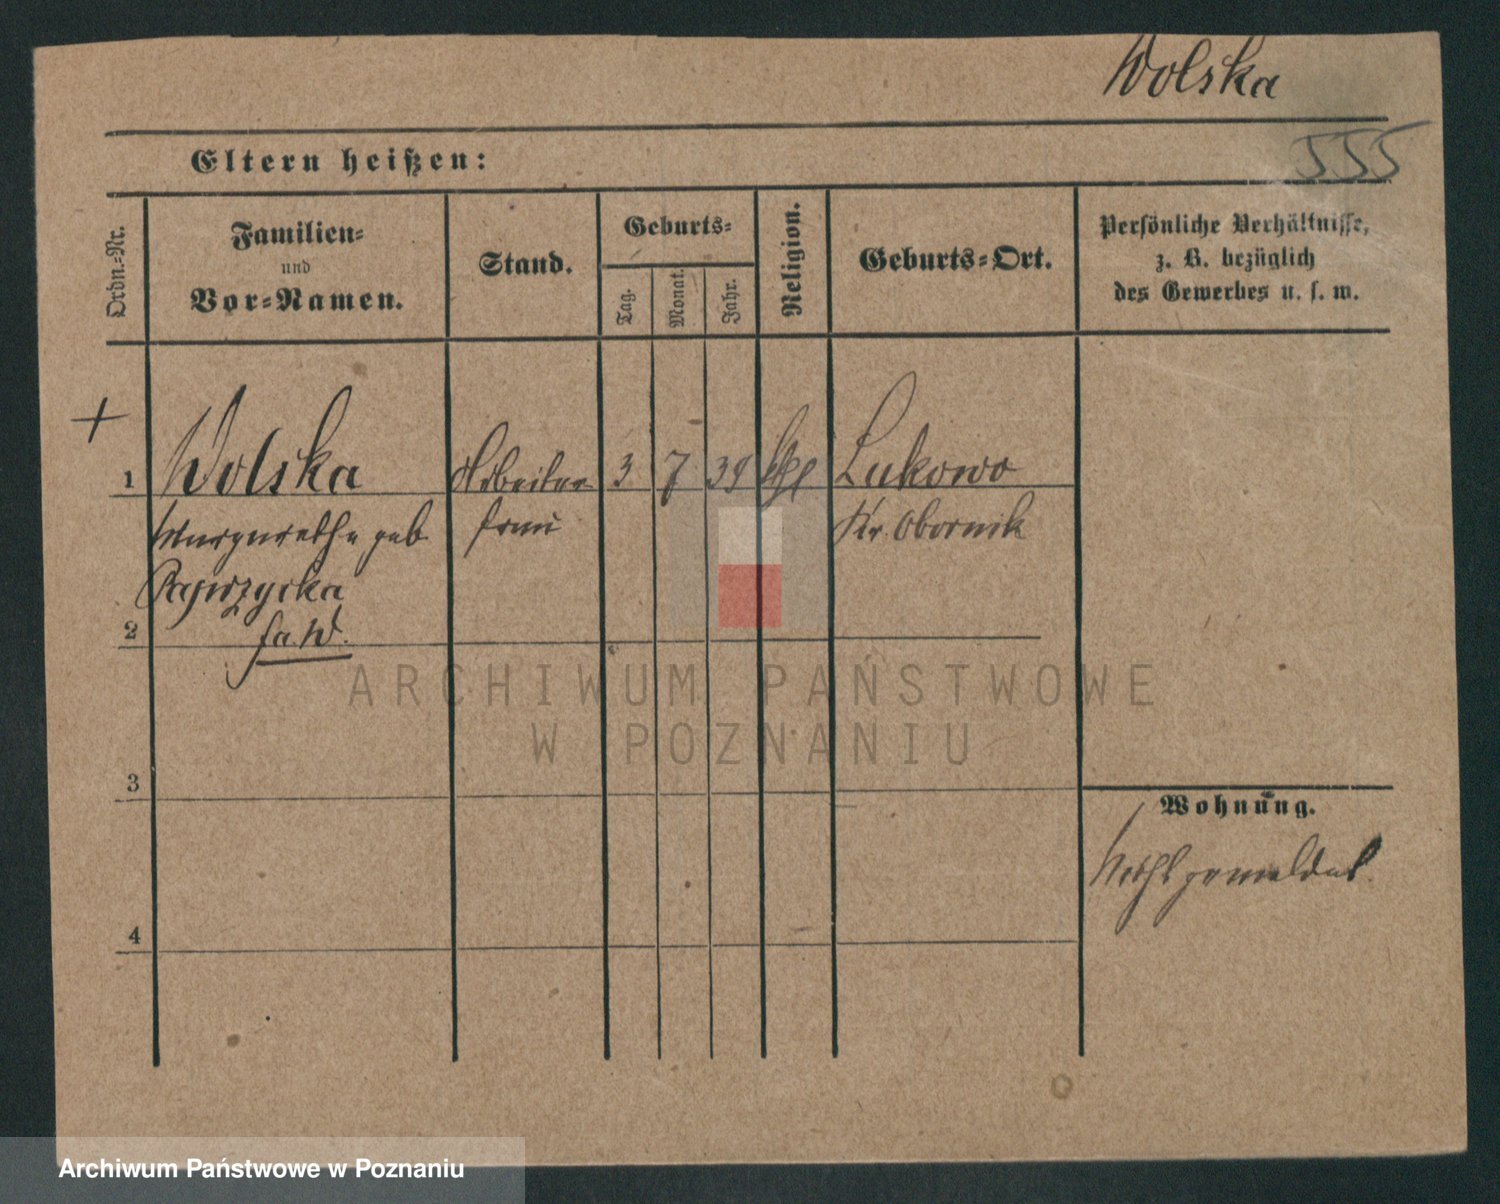 Wolska
555
Eltern heißen:
Ordn.-Nr.
Familien-
und
Vor-Namen.
Stand.
Geburts-
Tag.
Monat.
Jahr.
Religion.
Geburts-Ort.
Persönliche Verhältnisse,
z. B. bezüglich
des Gewerbes u. s. w.
+
1 Wolska Arbeiter 3 7 39 Lukowo
Margarethe geb frau Kr. Obornik
2
3
Wohnung.
Nicht gemeldet.
4
ARCHIWUM PAŃSTWOWE
W POZNANIU
Archiwum Państwowe w Poznaniu